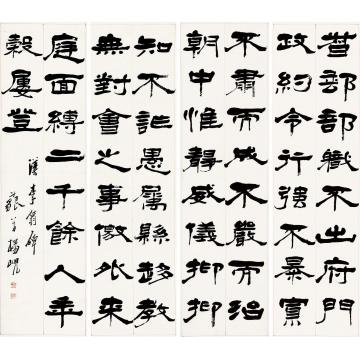 督郵部職不出府門
政約令行強不暴寡
不肅而成不嚴而治
朝中惟静威儀抑抑
知不詐愚屬縣趍教
無對會之事徼外來
庭面縛二千餘人年
穀屢登
漢李翕碑
藐翁楊峴